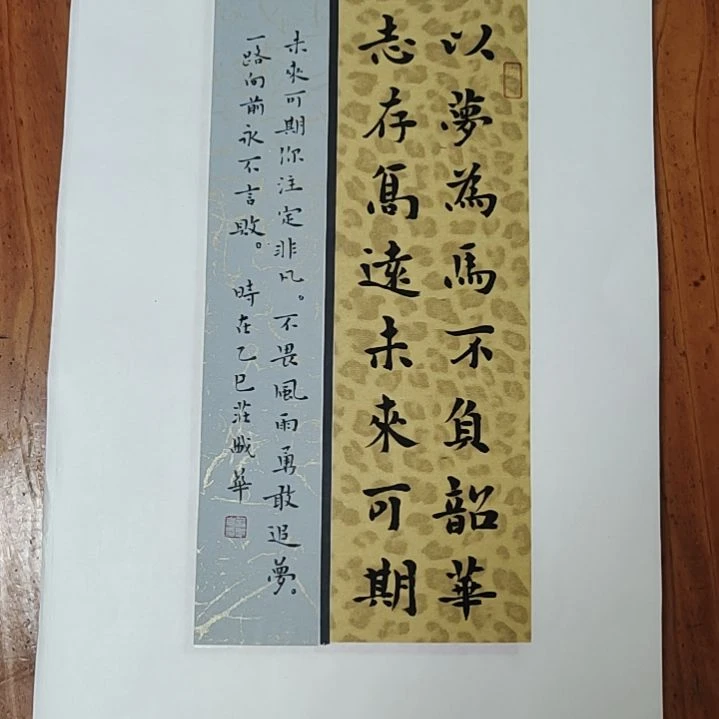 以夢為馬不負韶華
志存高遠未來可期
未來可期你注定非凡。不畏風雨勇敢追夢。
一路向前永不言敗。 時在乙巳莊 華